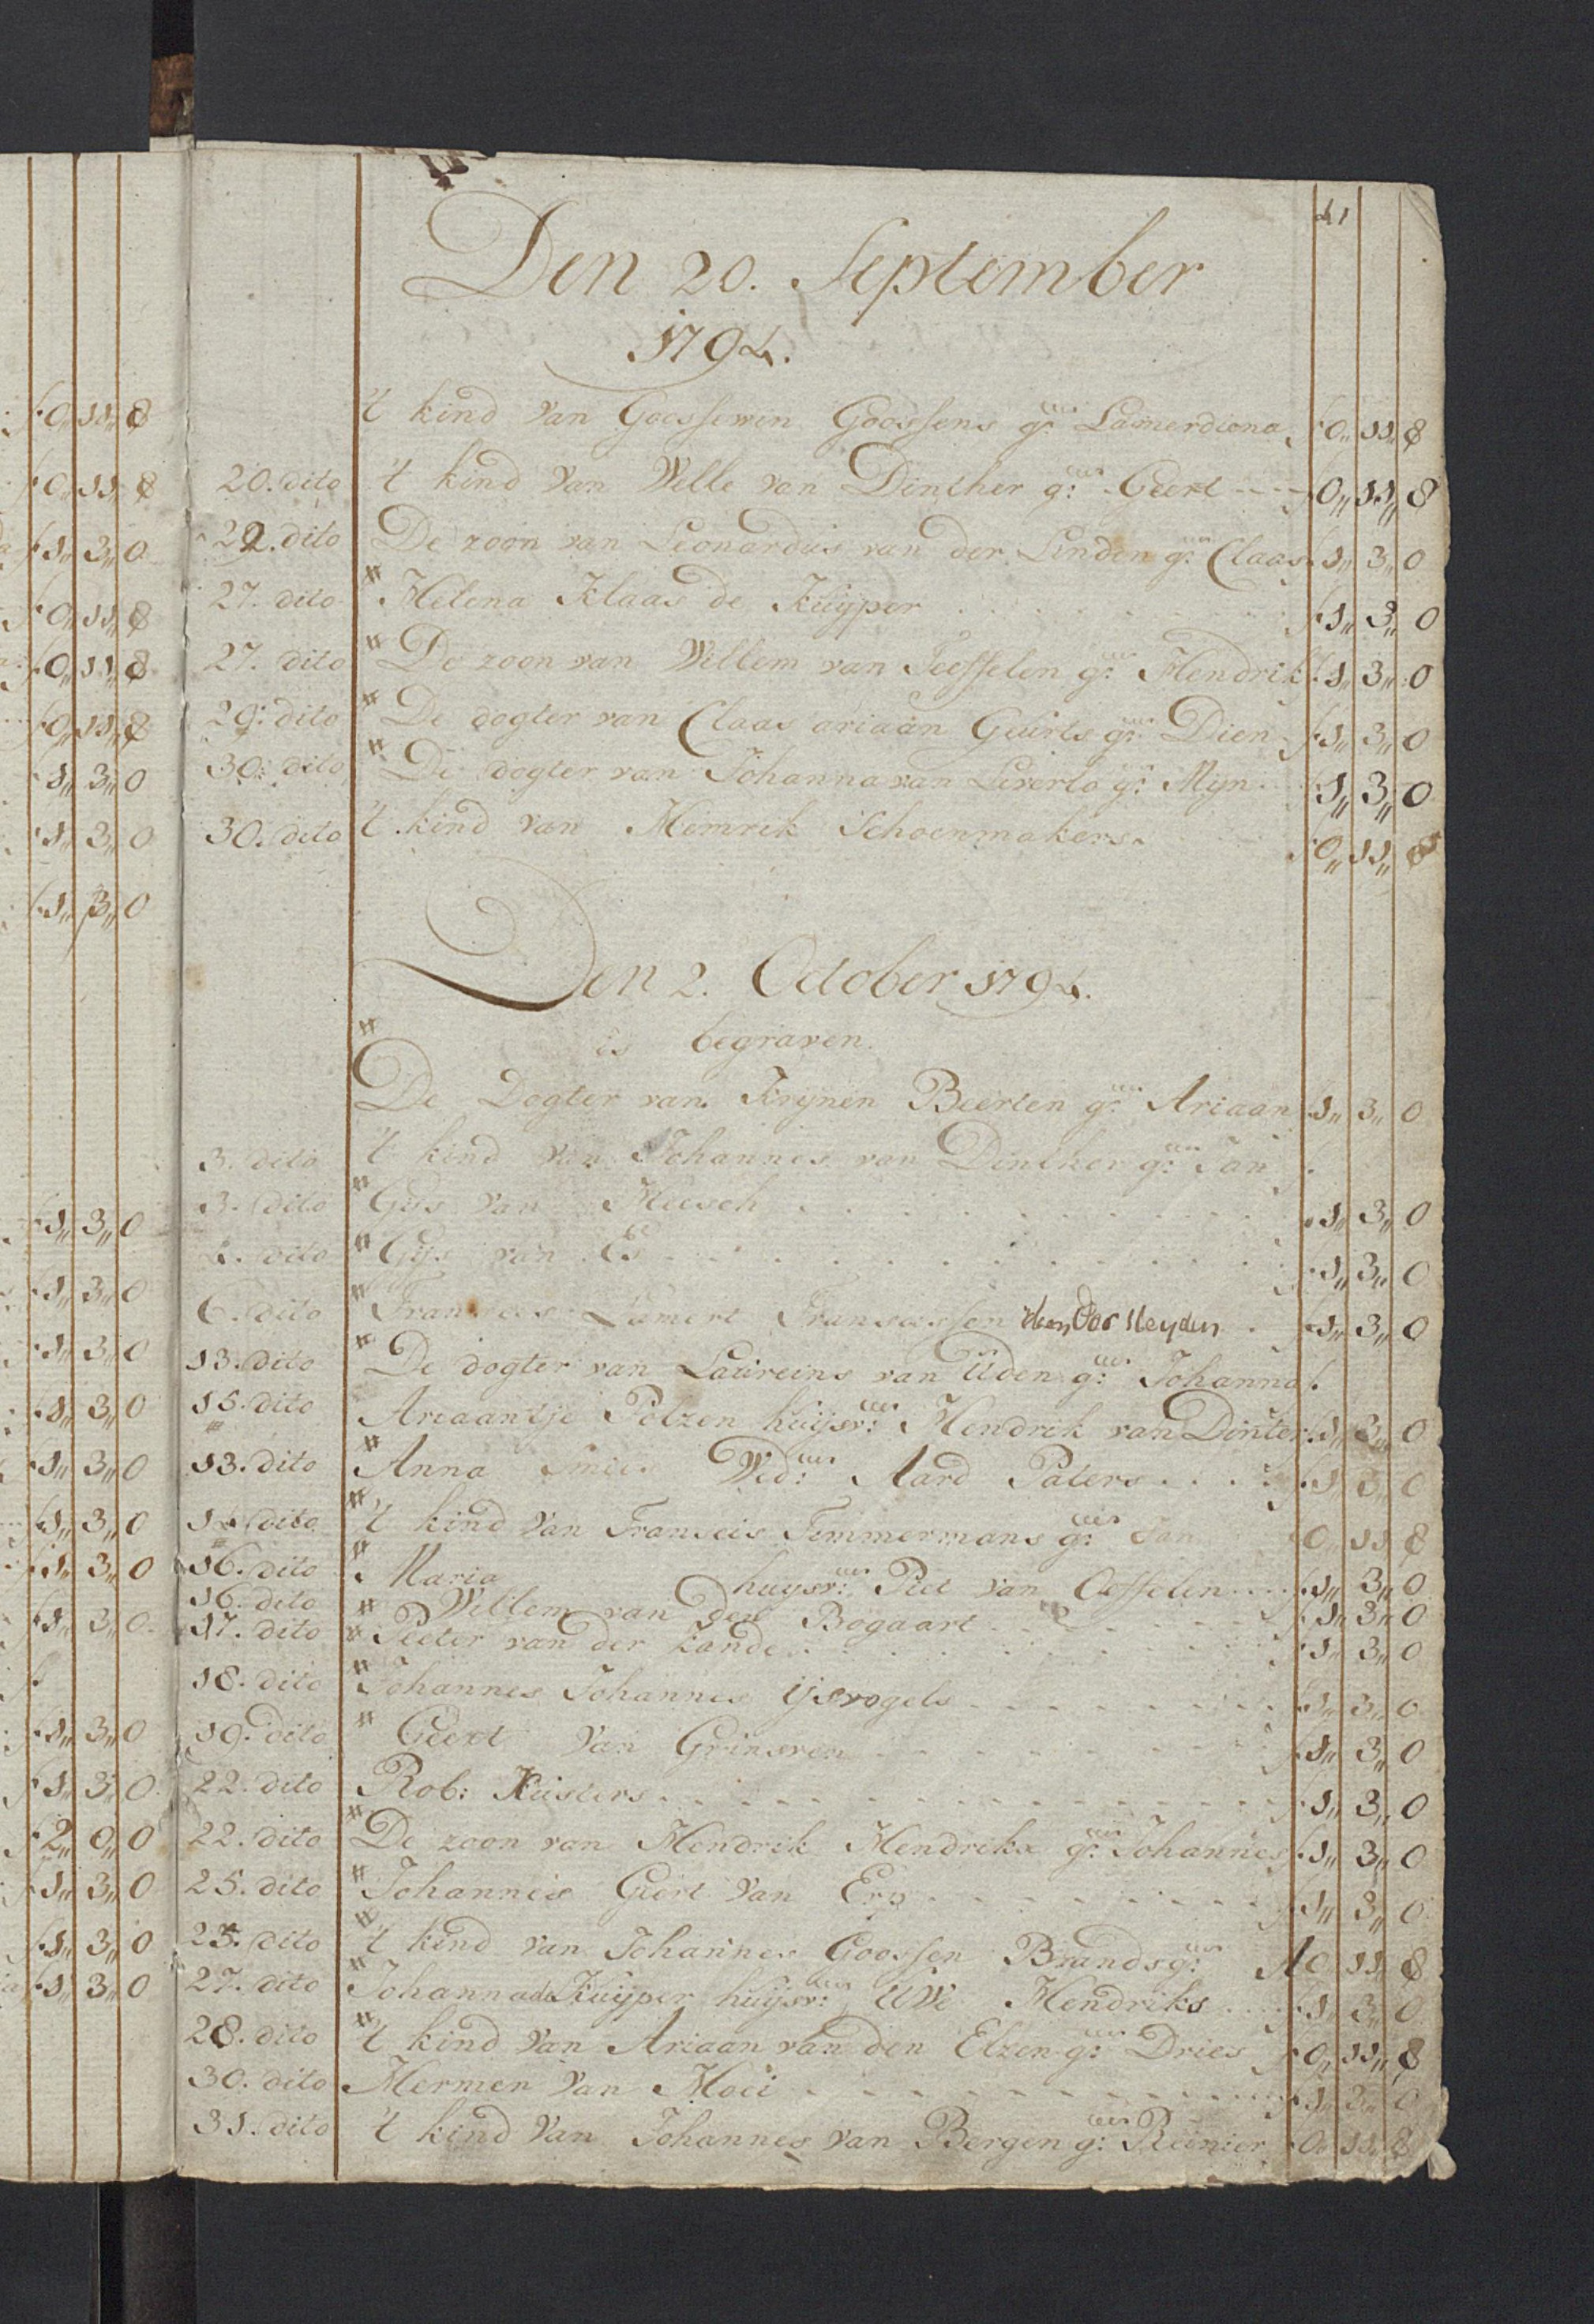 41
Den 20. September
1794.
't kind van Goossewin Goossens g: Lamerdiena f 0,, 11,, 8
20. dito 't kind van Welle van Dinther g: Geert f 0,, 11,, 8
22. dito De zoon van Leonardus van der Linden g: Claas f 1,, 3,, 0
27. dito Helena Klaas de Kuyper f 1,, 3,, 0
27. dito De zoon van Willem van Teeffelen g: Hendrik f 1,, 3,, 0
29. dito De dogter van Claas ariaan Geurts g: Dien f 1,, 3,, 0
30. dito De dogter van Johanna van Lieverlo g: Mijn f 1,, 3,, 0
30. dito 't kind van Hemrik Schoenmakers. f 0,, 11,, 8
Den 2. October 1794.
is begraven.
De Dogter van Krijnen Beerten g: Ariaan f 1,, 3,, 0
3. dito 't kind van Johannes van Dinther g: Jan f
3. dito Gijs van Heesch f 1,, 3,, 0
4. dito Gijs van Es f 1,, 3,, 0
6. dito Lamert Franscissen van der Heyden f 1,, 3,, 0
13. dito De dogter van Laureins van Uden g: Johanna f
15. dito Ariaantje Pelzen huijsv: Hendrik van Dinter f 1,, 3,, 0
13. dito Anna Smits Wed: Aard Paters f 1 3,, 0
14. dito 't kind van Franscis Timmermans g: Jan 0,, 11 8
16. dito Maria huysv: Piet van Oeffelen f 1,, 3,, 0
16. dito Willem van den Bogaart f 1,, 3,, 0
17. dito Peeter van der Zande f 1,, 3,, 0
18. dito Johannes Johannes ijsvogels f 1,, 3,, 0
19. dito Geert Van Grinsven f 1,, 3,, 0
22. dito Rob: Kusters f 1,, 3,, 0
22. dito De zoon van Hendrik Hendriks g: Johannes f 1,, 3,, 0
25. dito Johannes Geert van Erp f 1,, 3,, 0
25. dito 't kind van Johannes Goossen Brands g: 0 11,, 8
27. dito Johanna de Kuijper huijsv: Hendriks f 1,, 3,, 0
28. dito 't kind van Ariaan van den Elzen g: Dries f 0,, 11,, 8
30. dito Hermen van Mooi f 1,, 3,, 0
31. dito 't kind van Johannes van Bergen g: Reinier f 0,, 11,, 8